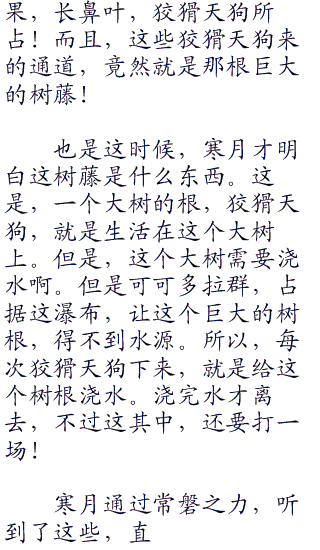 果，长鼻叶，狡猾天狗所
占！而且，这些狡猾天狗来
的通道，竟然就是那根巨大
的树藤！
也是这时候，寒月才明
白这树藤是什么东西。这
是，一个大树的根，狡猾天
狗，就是生活在这个大树
上。但是，这个大树需要浇
水啊。但是可可多拉群，占
据这瀑布，让这个巨大的树
根，得不到水源。所以，每
次狡猾天狗下来，就是给这
个树根浇水。浇完水才离
去，不过这其中，还要打一
场！
寒月通过常磐之力，听
到了这些，直